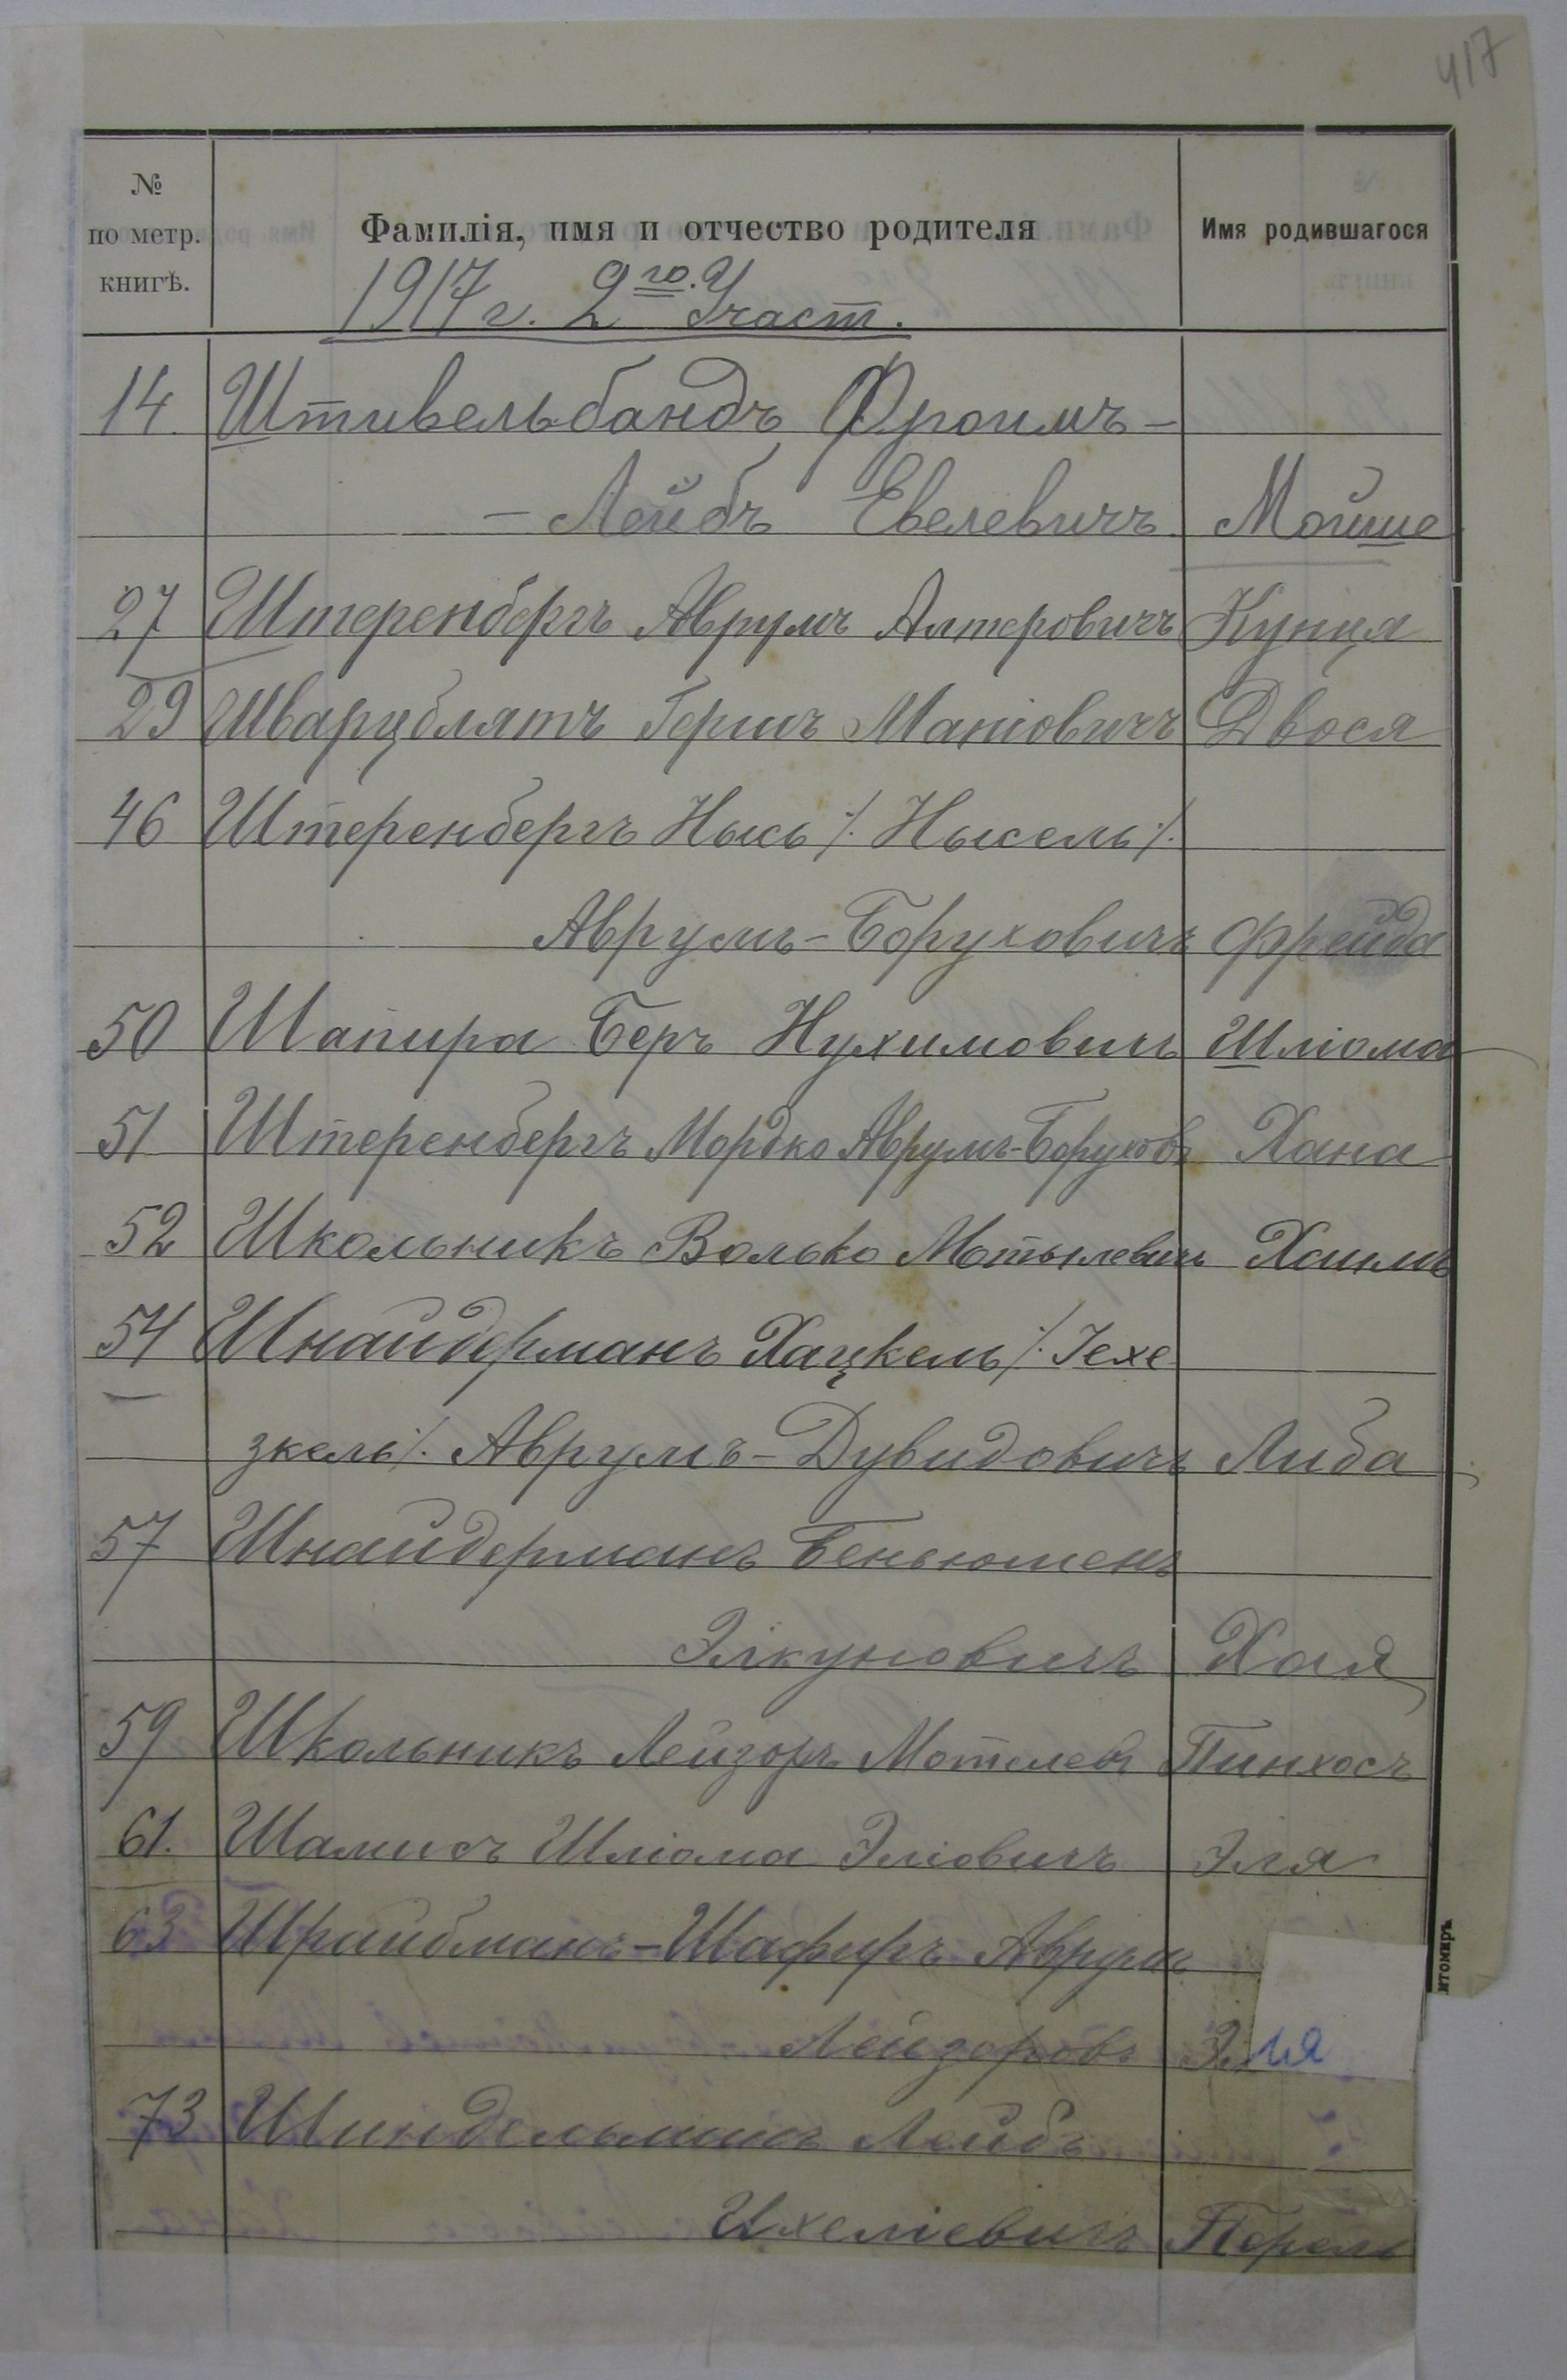 417
№
по метр.
книгѣ.
Фамилія, имя и отчество родителя
Имя родившагося
1917 г. 2го. Участ.
14. Штивельбандъ Фроимъ-
- Лейбъ Евелевичъ Мойше
27 Штеренбергъ Аврумъ Алтеровичъ Куния
29 Шварцблятъ Гершъ Маніовичъ Двося
46 Штеренбергъ Нысь /. Нысель /.
Аврумъ-Боруховичъ Фрейда
50 Шапира Беръ Нухимовичъ Шліома
51 Штеренбергъ Мордко Аврумъ-Борухов. Хана
52 Школьникъ Волько Мотылевичъ Хаимъ
54 Шнайдерманъ Хацкель /. Іехе
зкель /. Аврумъ-Дувидовичъ Либа
57 Шнайдерманъ Беньюменъ
Элкуновичъ Хая
59 Школьникъ Лейзоръ Мотелев. Пинхосъ
61. Шамисъ Шліома Эліовичъ Эля
63 Шрайбманъ-Шафиръ Аврумъ
Лейзоров. Эля
73 Шиндельманъ Лейбъ
Ихеліевичъ Перель
итомиръ